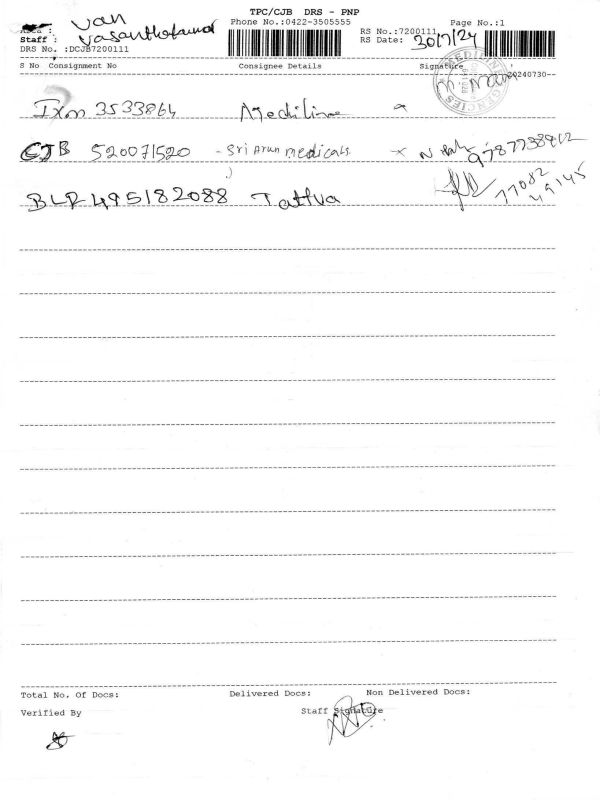 TPC/CJB DRS - PNP
van
Phone No.:0422-3505555
Page No.:1
Area :
RS No.:7200111
Staff :
RS Date: 30/7/24
DRS No. :DCJB7200111
S No Consignment No Consignee Details Signature
20240730
Ixm 3533864 Mediline
CJB 520071520 - Sri Arun medicals
BLR 495182088 Tattva
77082
49145
Total No. Of Docs: Delivered Docs: Non Delivered Docs:
Verified By Staff Signature